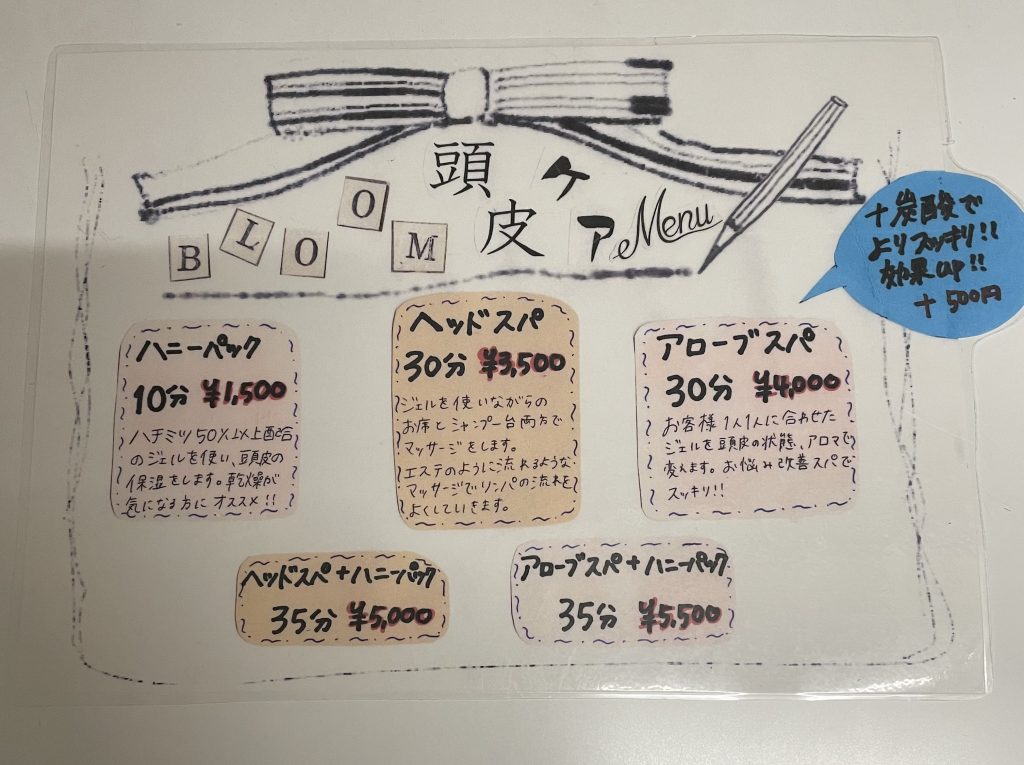 BLOOM
頭皮ケア
Menu
+炭酸で
よりスッキリ!!
効果up!!
+500円
ハニーパック
10分 ¥1,500
ハチミツ50%以上配合
のジェルを使い、頭皮の
保湿をします。乾燥が
気になる方にオススメ!!
ヘッドスパ
30分 ¥3,500
ジェルを使いながらの
お席とシャンプー台両方で
マッサージをします。
エステのように流れるような
マッサージでリンパの流れを
よくしていきます。
アローブスパ
30分 ¥4,000
お客様1人1人に合わせた
ジェルを頭皮の状態、アロマで
変えます。お悩み改善スパで
スッキリ!!
ヘッドスパ+ハニーパック
35分 ¥5,000
アローブスパ+ハニーパック
35分 ¥5,500